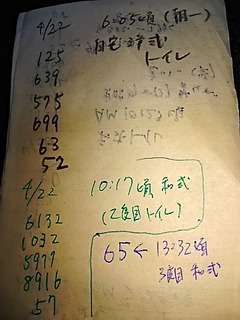 4/22 6:05頃(朝一)
125 自宅洋式
639 トイレ
575
699
63
52
4/22 10:17頃 和式
6132 (2度目トイレ)
1032
5977 65←13:32頃
8916 3度目 和式
57